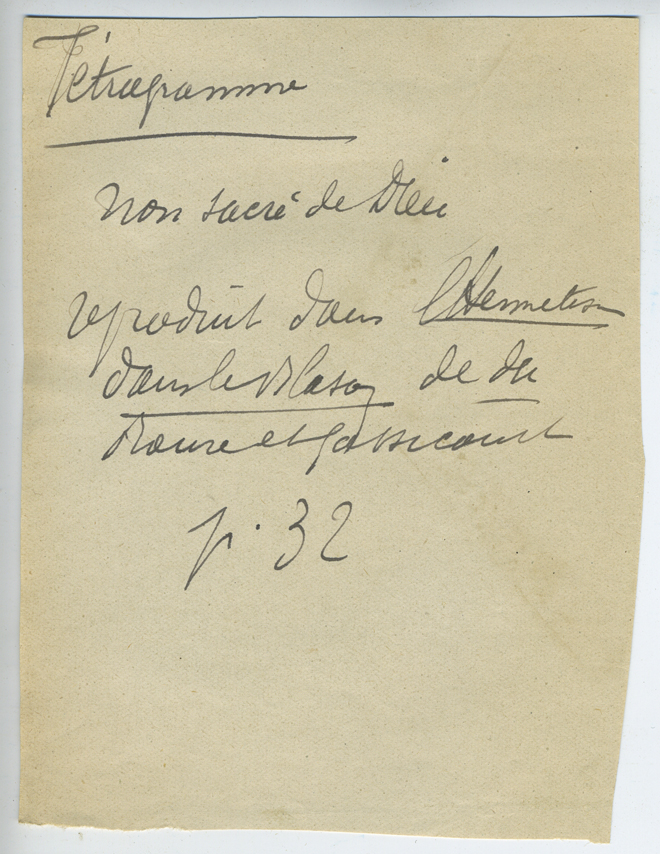 Tétragramme
Nom sacré de Dieu
reproduit dans l'Hermetism
dans le Blason de du
Roure et Gassicourt
p. 32